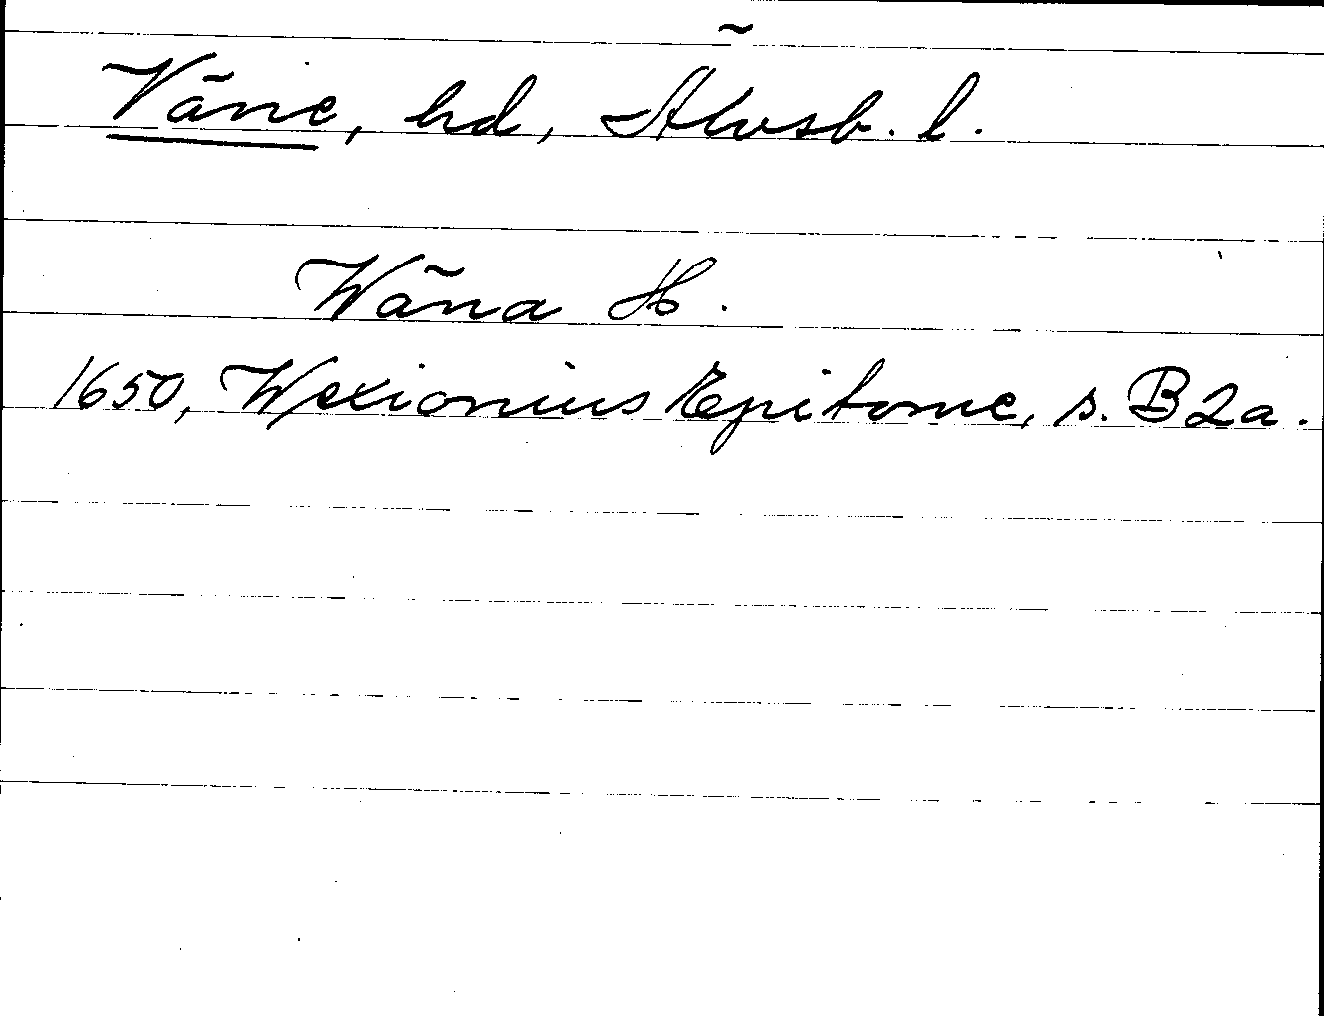 Väne, hd, Älvsb. l.
Wäna H.
1650, Wexionius Epitome, s. B2a.